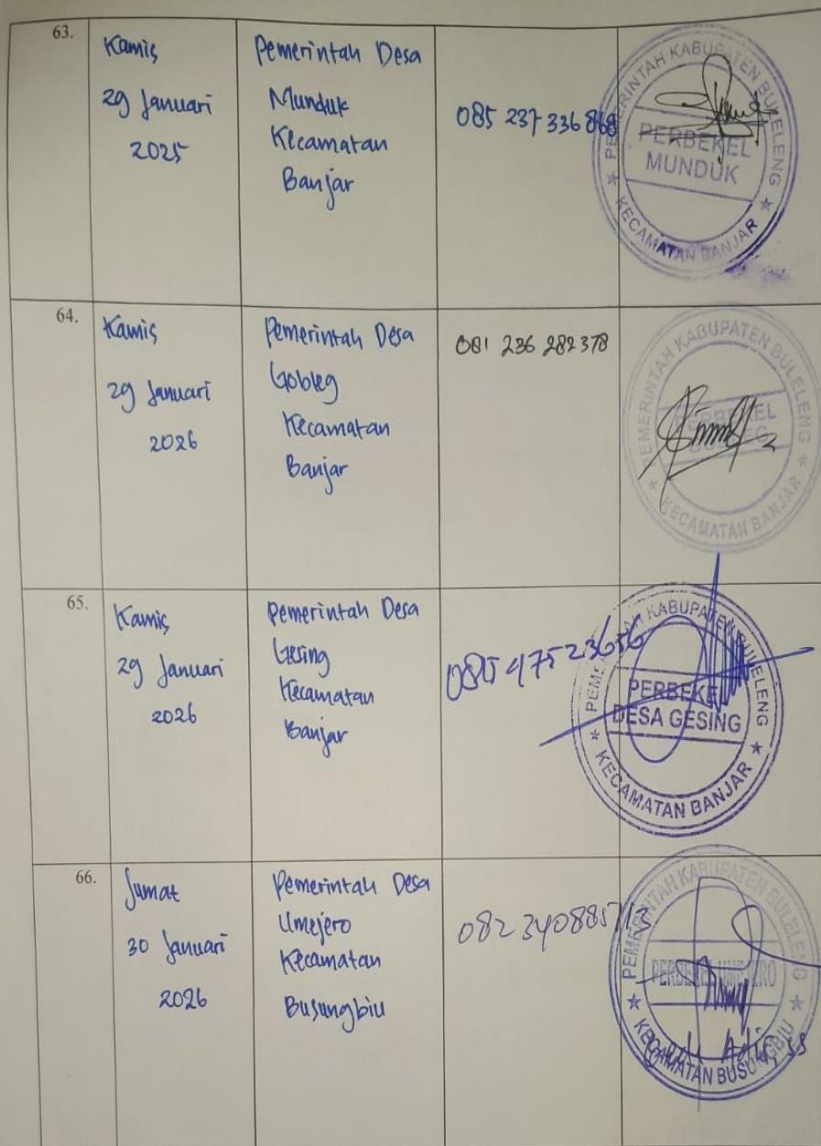 63.
Kamis
29 Januari
2025
Pemerintah Desa
Munduk
Kecamatan
Banjar
085 237 336 868
PEMERINTAH KABUPATEN BULELENG
PERBEKEL
MUNDUK
KECAMATAN BANJAR
64.
Kamis
29 Januari
2026
Pemerintah Desa
Gobleg
Kecamatan
Banjar
081 236 282 378
PEMERINTAH KABUPATEN BULELENG
PERBEKEL
KECAMATAN BANJAR
65.
Kamis
29 Januari
2026
Pemerintah Desa
Gesing
Kecamatan
Banjar
PEMERINTAH KABUPATEN BULELENG
PERBEKEL
DESA GESING
KECAMATAN BANJAR
66.
Jumat
30 Januari
2026
Pemerintah Desa
Umejero
Kecamatan
Busungbiu
082340885713
PEMERINTAH KABUPATEN BULELENG
PERBEKEL UMEJERO
KECAMATAN BUSUNGBIU